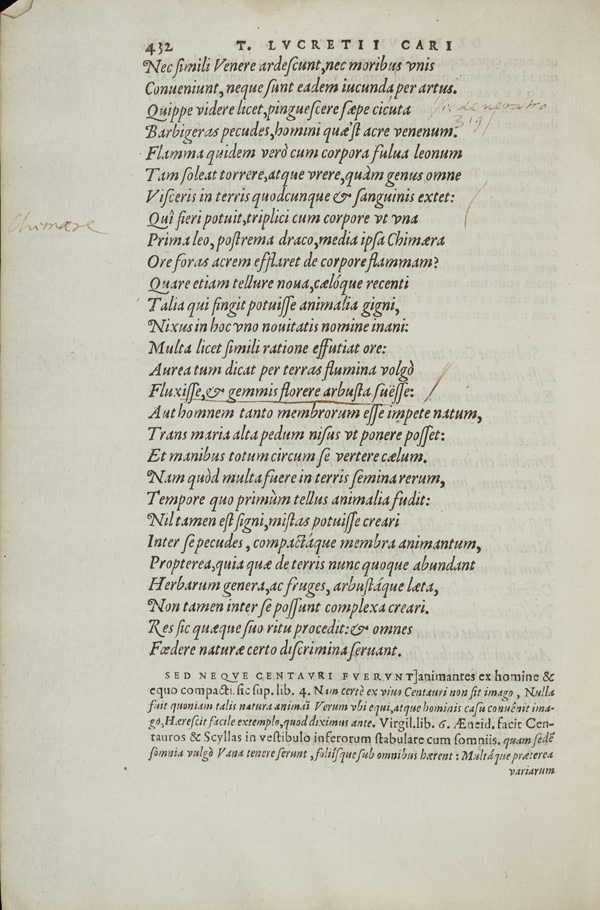 432 T. LVCRETII CARI
Nec simili Venere ardescunt, nec moribus vnis
Conueniunt, neque sunt eadem iucunda per artus.
Quippe videre licet, pinguescere sæpe cicuta
Barbigeras pecudes, homini quæ'st acre venenum.
319
Flamma quidem verò cum corpora fulua leonum
Tam soleat torrere, atque vrere, quàm genus omne
Visceris in terris quodcunque & sanguinis extet:
Quî fieri potuit, triplici cum corpore vt vna
Chimære
Prima leo, postrema draco, media ipsa Chimæra
Ore foras acrem efflaret de corpore flammam?
Quare etiam tellure noua, cælóque recenti
Talia qui fingit potuisse animalia gigni,
Nixus in hoc vno nouitatis nomine inani:
Multa licet simili ratione effutiat ore:
Aurea tum dicat per terras flumina volgò
Fluxisse, & gemmis florere arbusta suësse:
Aut homnem tanto membrorum esse impete natum,
Trans maria alta pedum nisus vt ponere posset:
Et manibus totum circum se vertere cælum.
Nam quòd multa fuere in terris semina rerum,
Tempore quo primùm tellus animalia fudit:
Nil tamen est signi, mistas potuisse creari
Inter se pecudes, compactáque membra animantum,
Propterea, quia quæ de terris nunc quoque abundant
Herbarum genera, ac fruges, arbustáque læta,
Non tamen inter se possunt complexa creari.
Res sic quæque suo ritu procedit: & omnes
Fœdere naturæ certo discrimina seruant.
SED NEQVE CENTAVRI FVERVNT]animantes ex homine &
equo compacti. sic sup. lib. 4. Nam certè ex viuo Centauri non fit imago, Nulla
fuit quoniam talis natura animai Verum vbi equi, atque hominis casu conuênit ima-
go, Hærescit facile extemplo, quod diximus ante. Virgil. lib. 6. Æneid. facit Cen-
tauros & Scyllas in vestibulo inferorum stabulare cum somniis. quam sedē
somnia vulgò Vana tenere ferunt, foliisque sub omnibus hærent: Multáque præterea
variarum